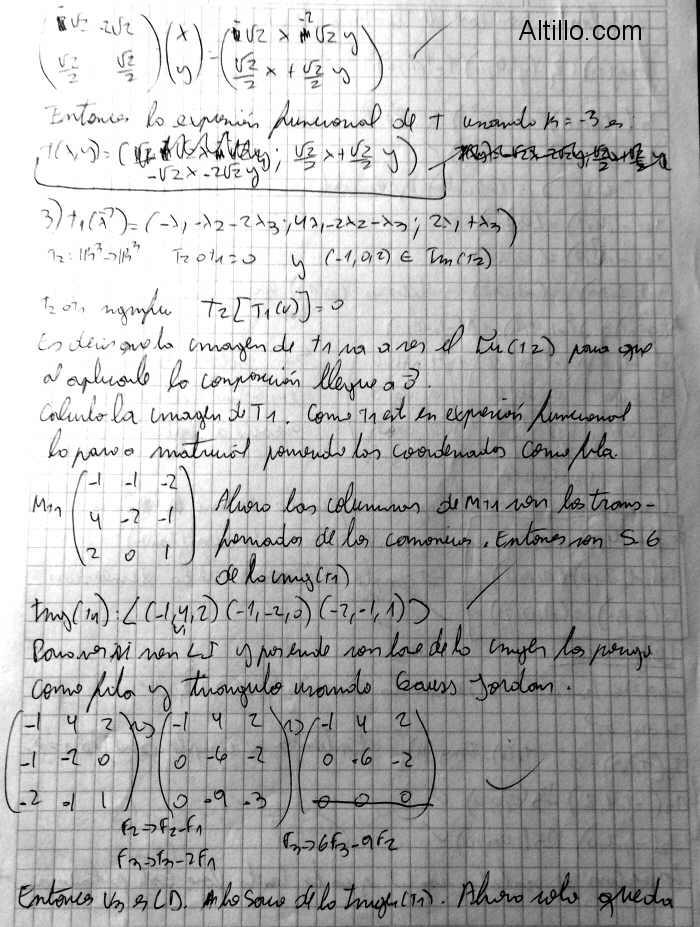 Altillo.com
√2 -2√2 x √2 x -2√2 y
√2/2 √2/2 y = √2/2 x + √2/2 y
Entonces la expresión funcional de T usando k = -3 es:
T(x,y) = ( ; √2/2 x + √2/2 y )
-√2 x - 2√2 y
3) T1(x⃗) = (-x1 - x2 - 2x3 ; 4x1 - 2x2 - x3 ; 2x1 + x3)
T2: ℝ³→ℝ³ T2 o T1 = 0 y (-1,0,2) ∈ Im(T2)
T2 o T1 significa T2[T1(v)] = 0
Es decir que la imagen de T1 va a ser el Nu(T2) para que
al aplicarle la composición llegue a 0⃗.
Calculo la imagen de T1. Como T1 está en expresión funcional
lo paso a matricial poniendo las coordenadas como fila
MT1 ( -1 -1 -2
4 -2 -1
2 0 1 )
Ahora las columnas de MT1 son los trans-
formados de los canonicos. Entonces son S.G
de la img(T1)
Img(T1): < (-1,4,2) (-1,-2,0) (-2,-1,1) >
v1
Para ver si son LI y por ende son base de la imagen los pongo
como fila y triangulo usando Gauss Jordan.
-1 4 2 ~> -1 4 2 ~> -1 4 2
-1 -2 0 0 -6 -2 0 -6 -2
-2 -1 1 0 -9 -3 0 0 0
F2→F2-F1
F3→F3-2F1 F3→6F3-9F2
Entonces v3 es LD. lo saco de la Img(T1). Ahora solo queda